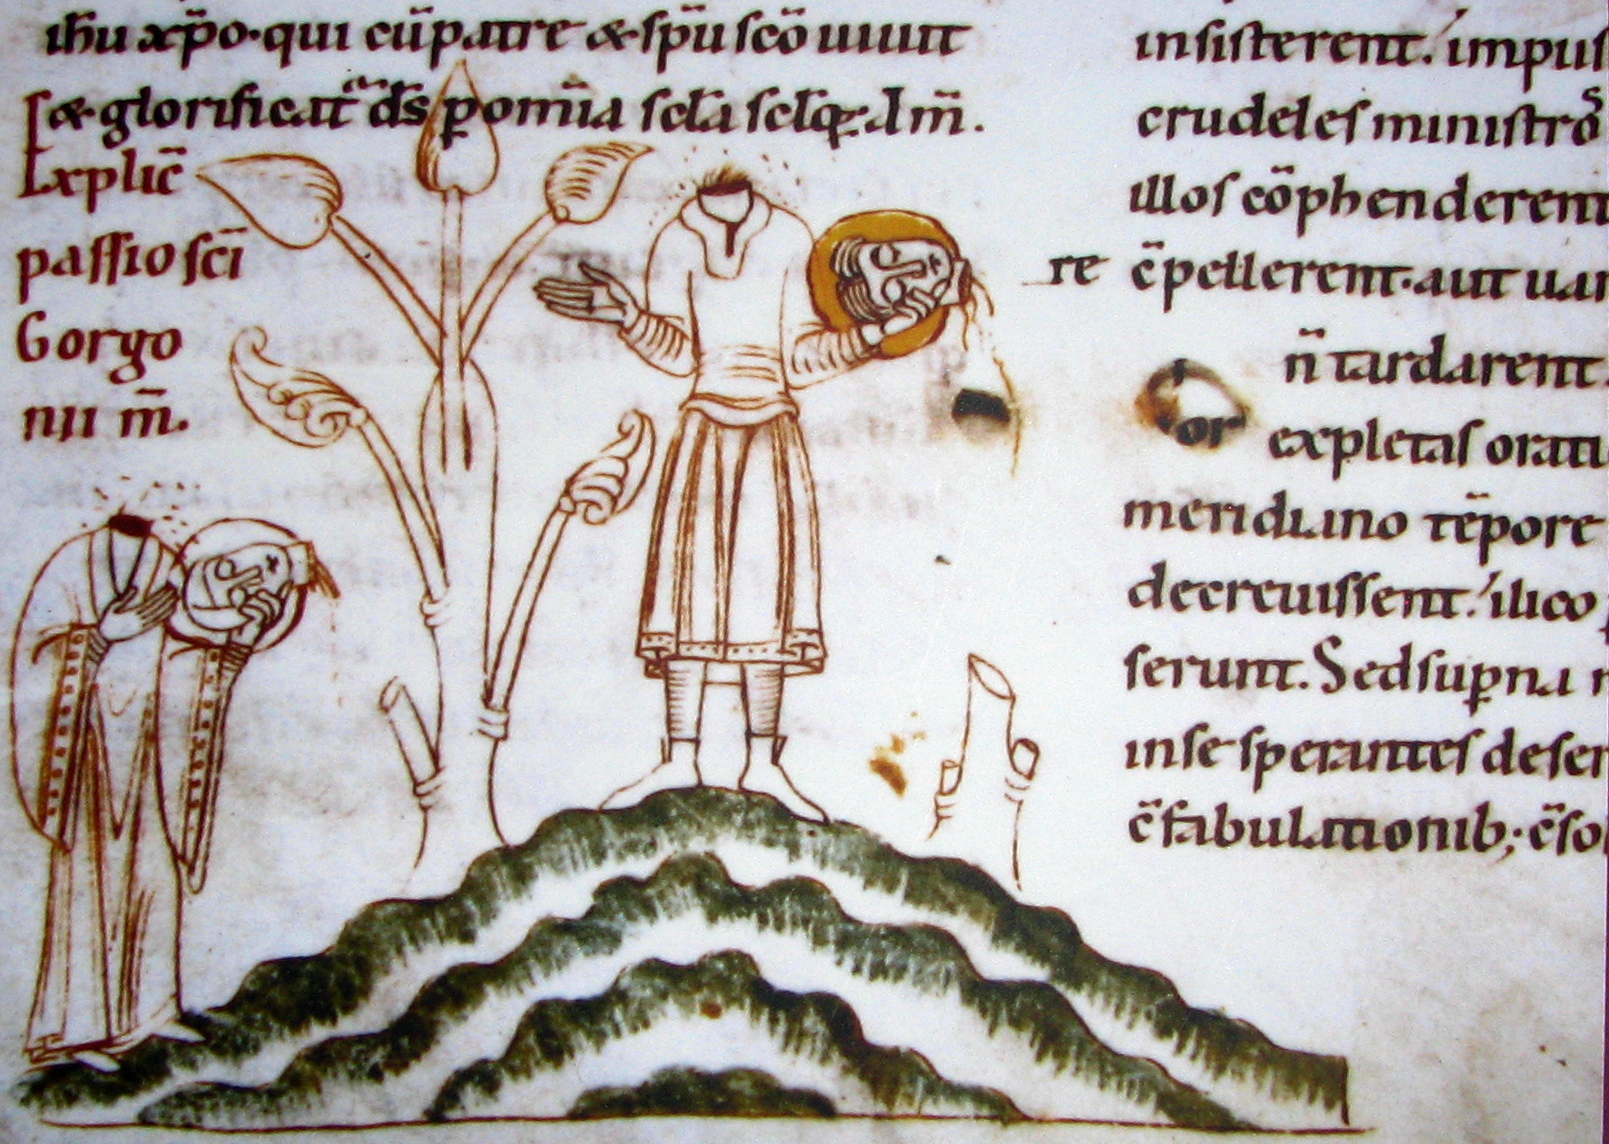 ihu xp̄o·qui cū patre &sp̄u scō uiuit
& glorificat᷑ ds̄ p om̄ia scl̄a scl̄oꝝ am̄.
Explic̄
passio scī
Gorgo
nii m̄.
insisterent. impus
crudeles ministrō
illos cōphenderent
re c̄pellerent·aut uar
n̄ tardarent.
or expletas orati
meridiano tēpore
decreuissent. ilico
serunt. Sed sup̄na
in se sperantes deser
c̄fabulationib; c̄so